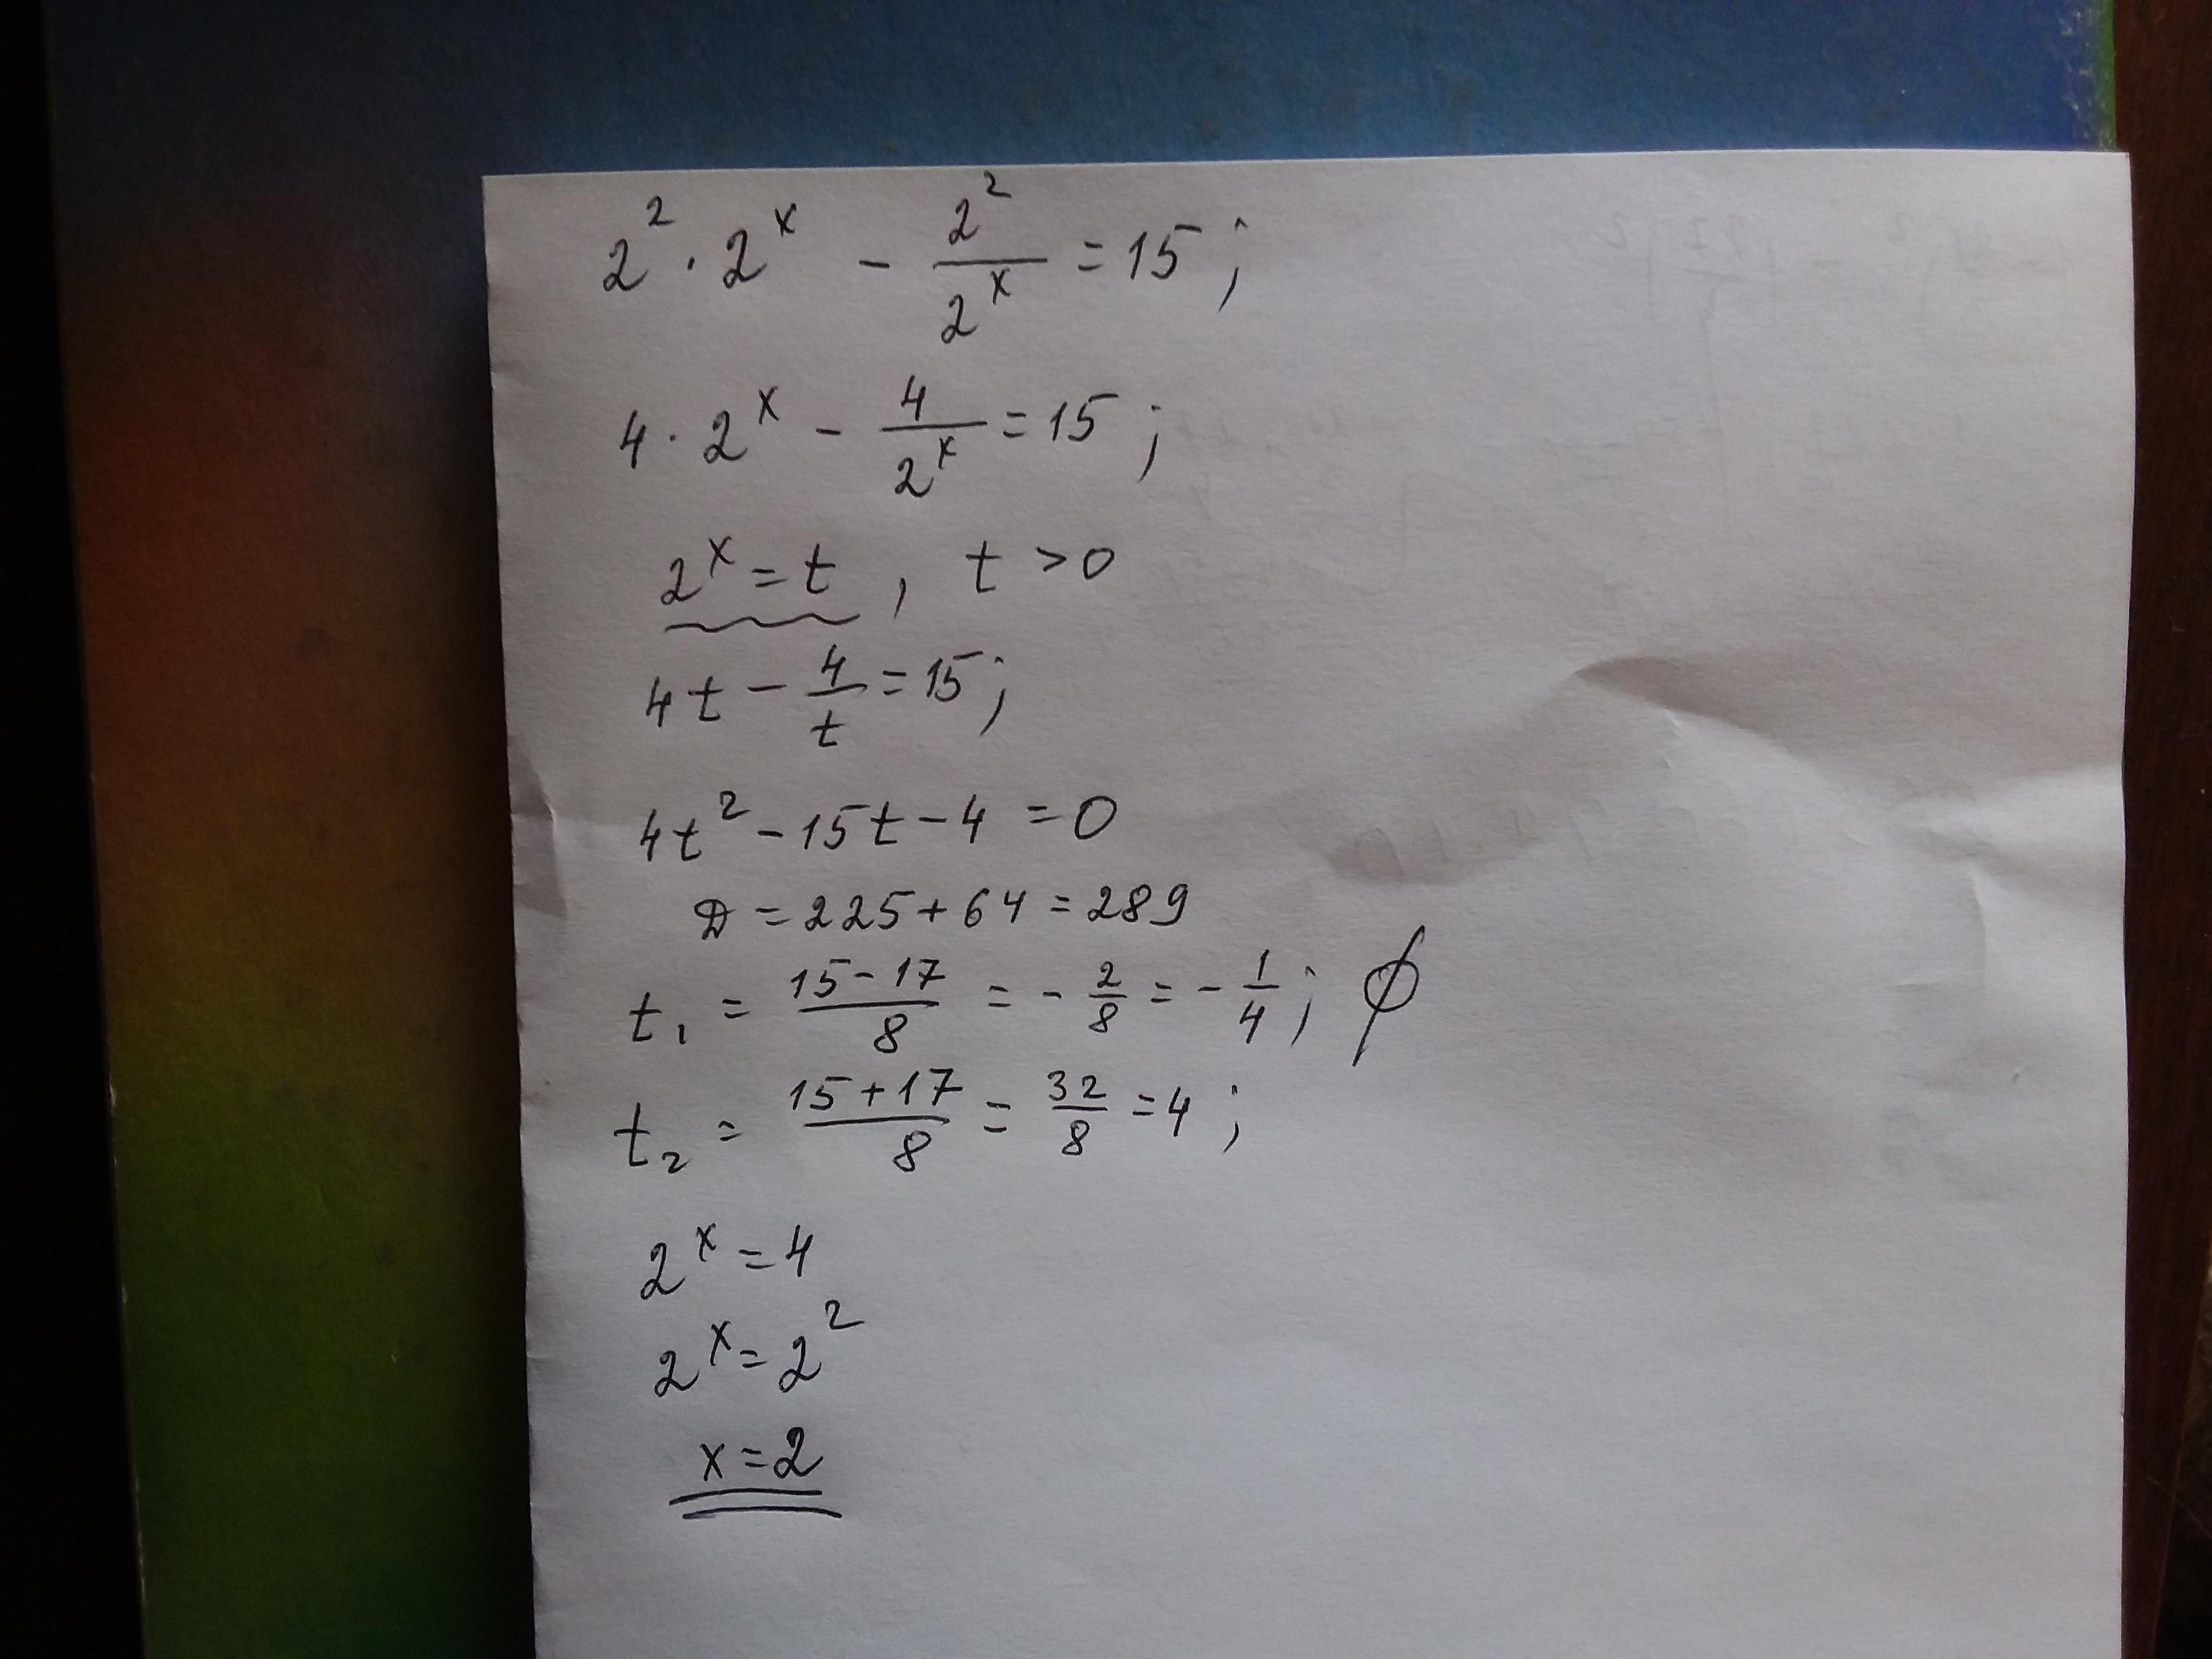 2² · 2ˣ - 2²/2ˣ = 15;
4 · 2ˣ - 4/2ˣ = 15;
2ˣ = t, t > 0
4t - 4/t = 15;
4t² - 15t - 4 = 0
D = 225 + 64 = 289
t₁ = (15 - 17)/8 = - 2/8 = - 1/4; ∅
t₂ = (15 + 17)/8 = 32/8 = 4;
2ˣ = 4
2ˣ = 2²
x = 2